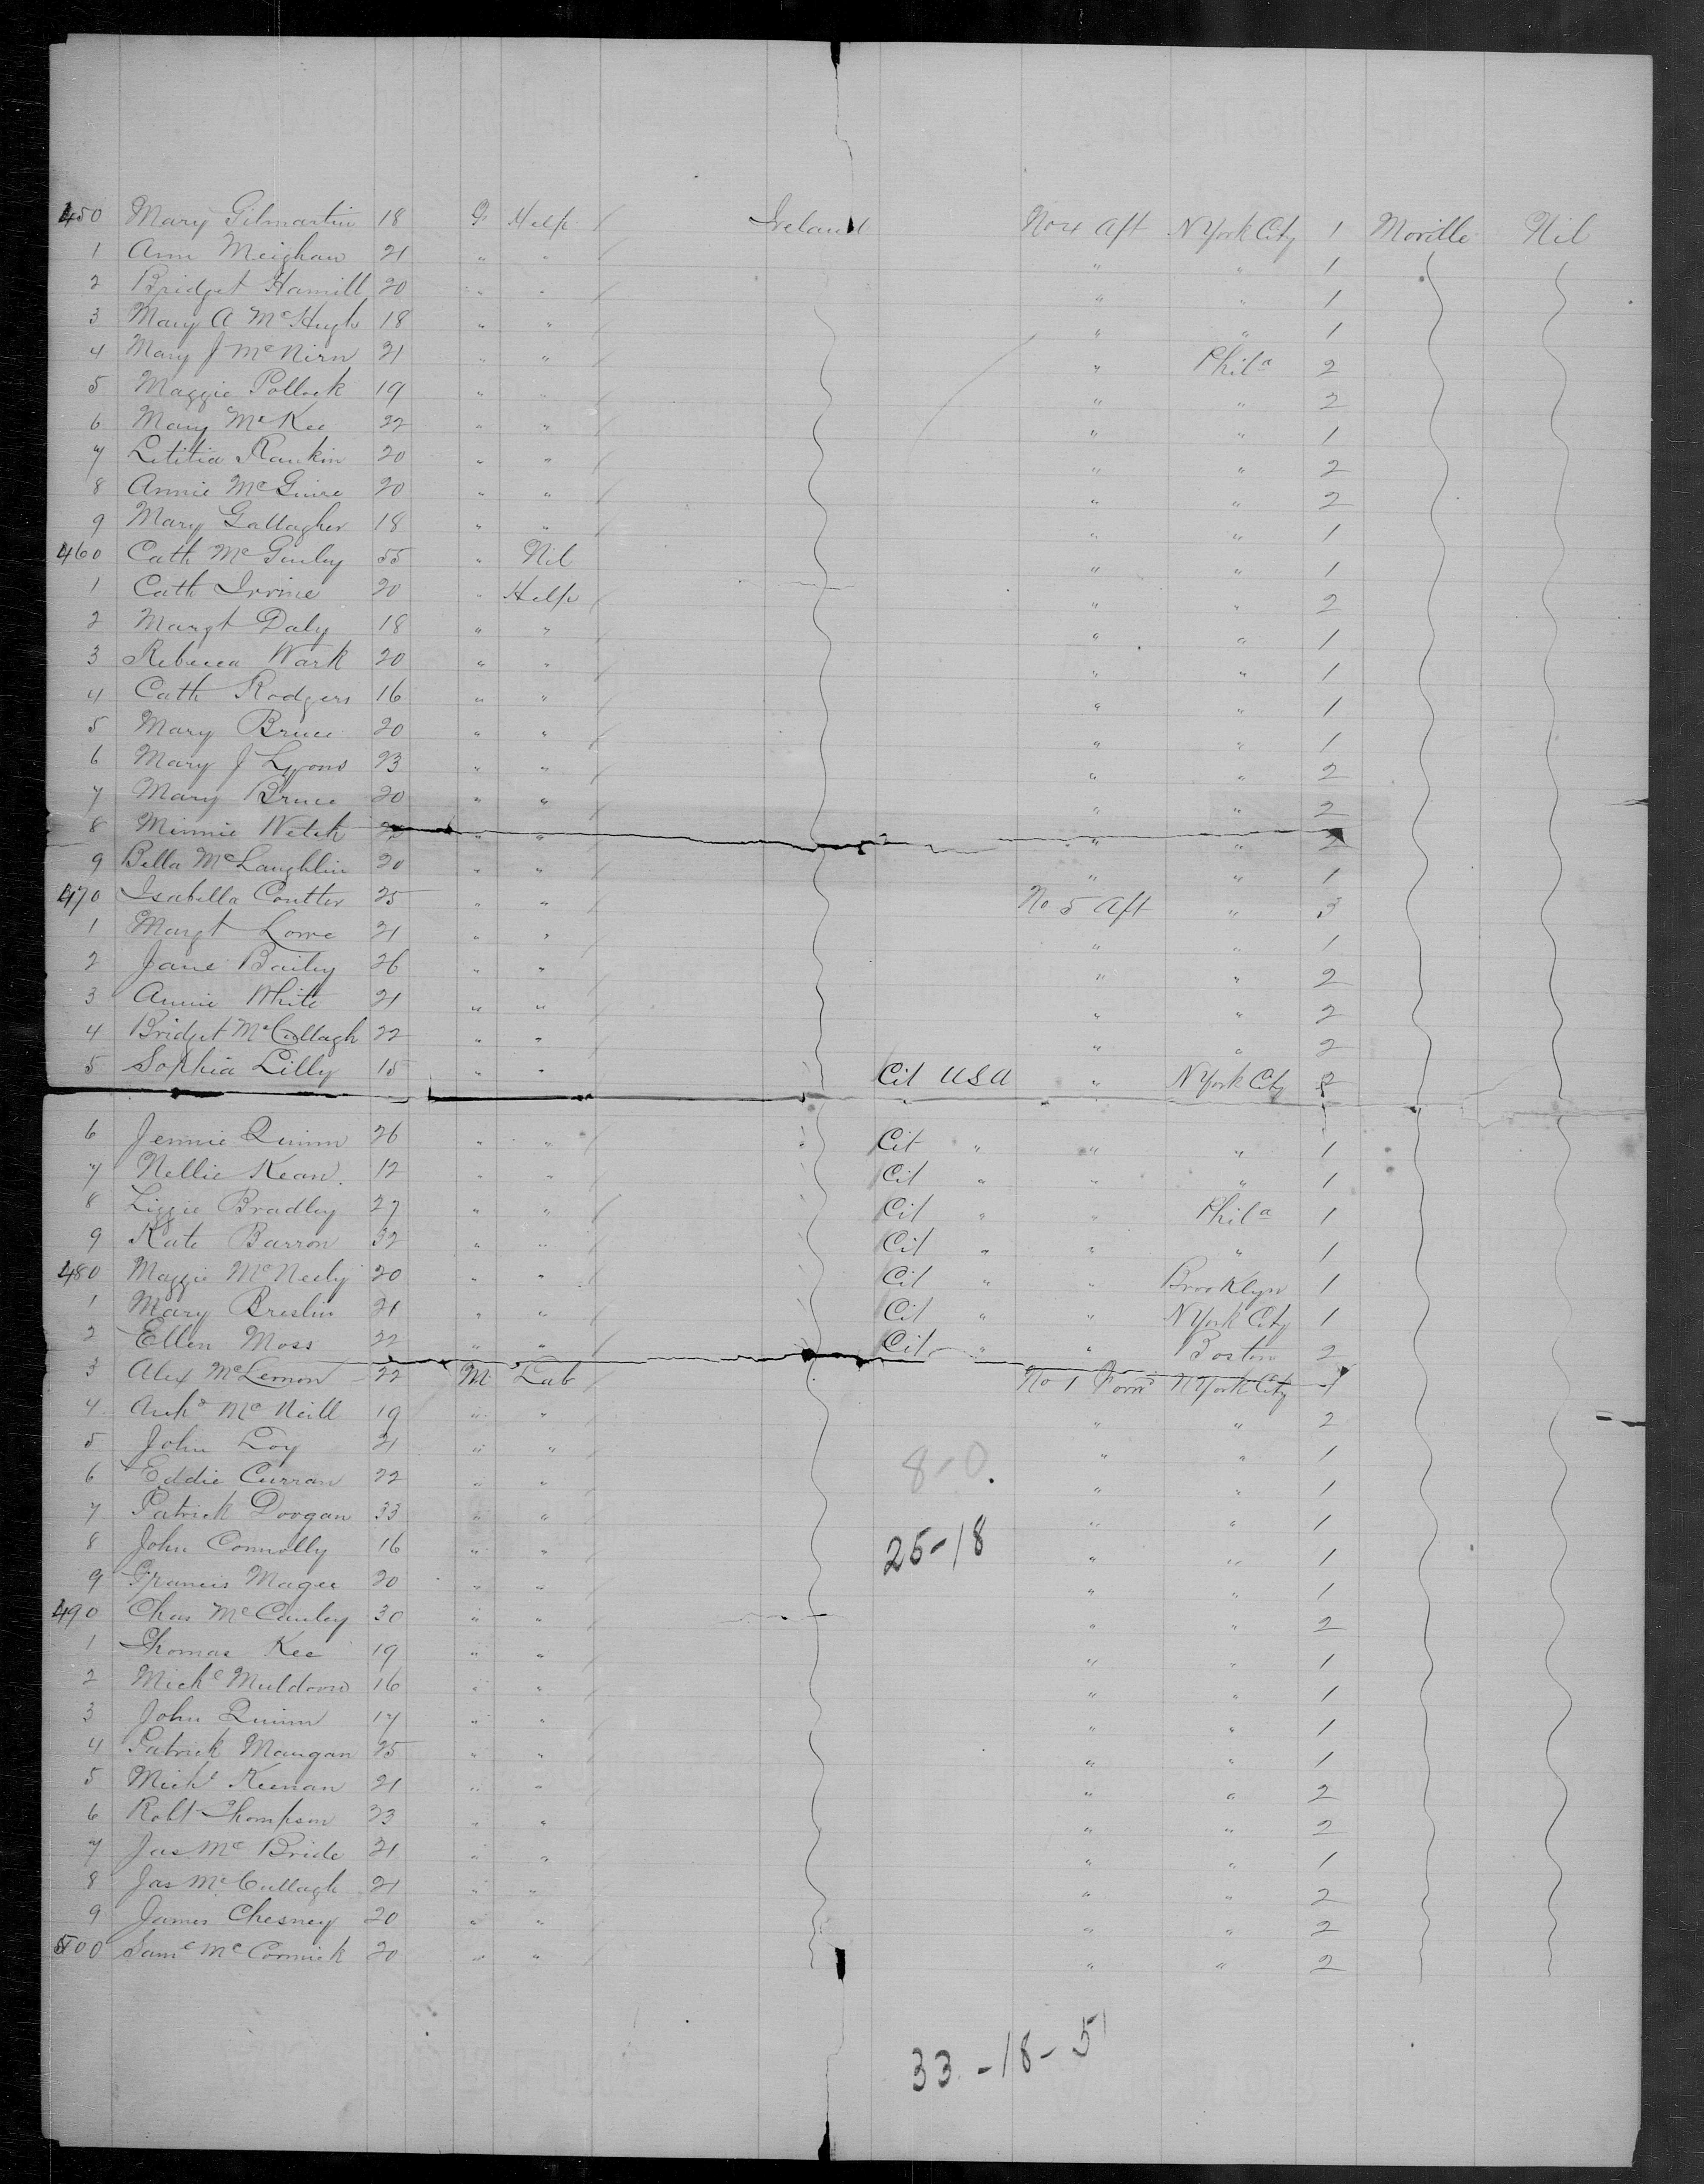 450 Mary Gilmartin 18 F Help / Ireland No 4 Aft N York City 1 Moville Nil
1 Ann Meighan 21 " " / " " 1
2 Bridget Hamill 20 " " / " " 1
3 Mary A McHugh 18 " " / " " 1
4 Mary J McNirn 21 " " / " Phila 2
5 Maggie Pollock 19 " " / " " 2
6 Mary McKee 22 " " / " " 1
7 Letitia Rankin 20 " " / " " 2
8 Annie McGuire 20 " " / " " 2
9 Mary Gallagher 18 " " / " " 1
460 Cath McGinley 55 " Nil " " 1
1 Cath Irvine 20 " Help / " " 2
2 Margt Daly 18 " " / " " 1
3 Rebecca Wark 20 " " / " " 1
4 Cath Rodgers 16 " " / " " 1
5 Mary Bruce 20 " " / " " 1
6 Mary J Lyons 23 " " / " " 2
7 Mary Bruce 20 " " / " " 2
8 Minnie " " / " " 2
9 Bella McLaughlin 20 " " / " " 1
470 Isabella Coulter 25 " " / No 5 Aft " 3
1 Margt Lowe 21 " " / " " 1
2 Jane Bailey 26 " " / " " 2
3 Annie White 21 " " / " " 2
4 Bridget McCullagh 22 " " / " " 2
5 Sophia Lilly 15 " " Cit USA " N York City 2
6 Jennie Quinn 26 " " / Cit " " " 1
7 Nellie Kean 12 " " / Cit " " " 1
8 Lizzie Bradley 27 " " / Cit " " Phila 1
9 Kate Barron 32 " " / Cit " " " 1
480 Maggie McNeely 20 " " / Cit " " Brooklyn 1
1 Mary Breslin 21 " " / Cit " " N York City 1
2 Ellen Moss 22 " " / Cit " " Boston 2
3 Alex McLernon 22 M Lab / No 1 Forwd N York City 1
4 Archd McNeill 19 " " / " " 2
5 John Loy 21 " " / " " 1
6 Eddie Curran 22 " " / 8-0 " " 1
7 Patrick Doogan 33 " " / " " 1
8 John Connolly 16 " " / 25-18 " " 1
9 Francis Magee 20 " " / " " 1
490 Chas McCauley 30 " " / " " 2
1 Thomas Kee 19 " " / " " 1
2 Michl Muldoon 16 " " / " " 1
3 John Quinn 17 " " / " " 1
4 Patrick Mangan 25 " " / " " 1
5 Michl Keenan 21 " " / " " 2
6 Robt Thompson 23 " " / " " 2
7 Jas McBride 21 " " / " " 1
8 Jas McCullagh 21 " " / " " 2
9 James Chesney 20 " " / " " 2
500 Saml McCormick 20 " " / " " 2
33-18-5